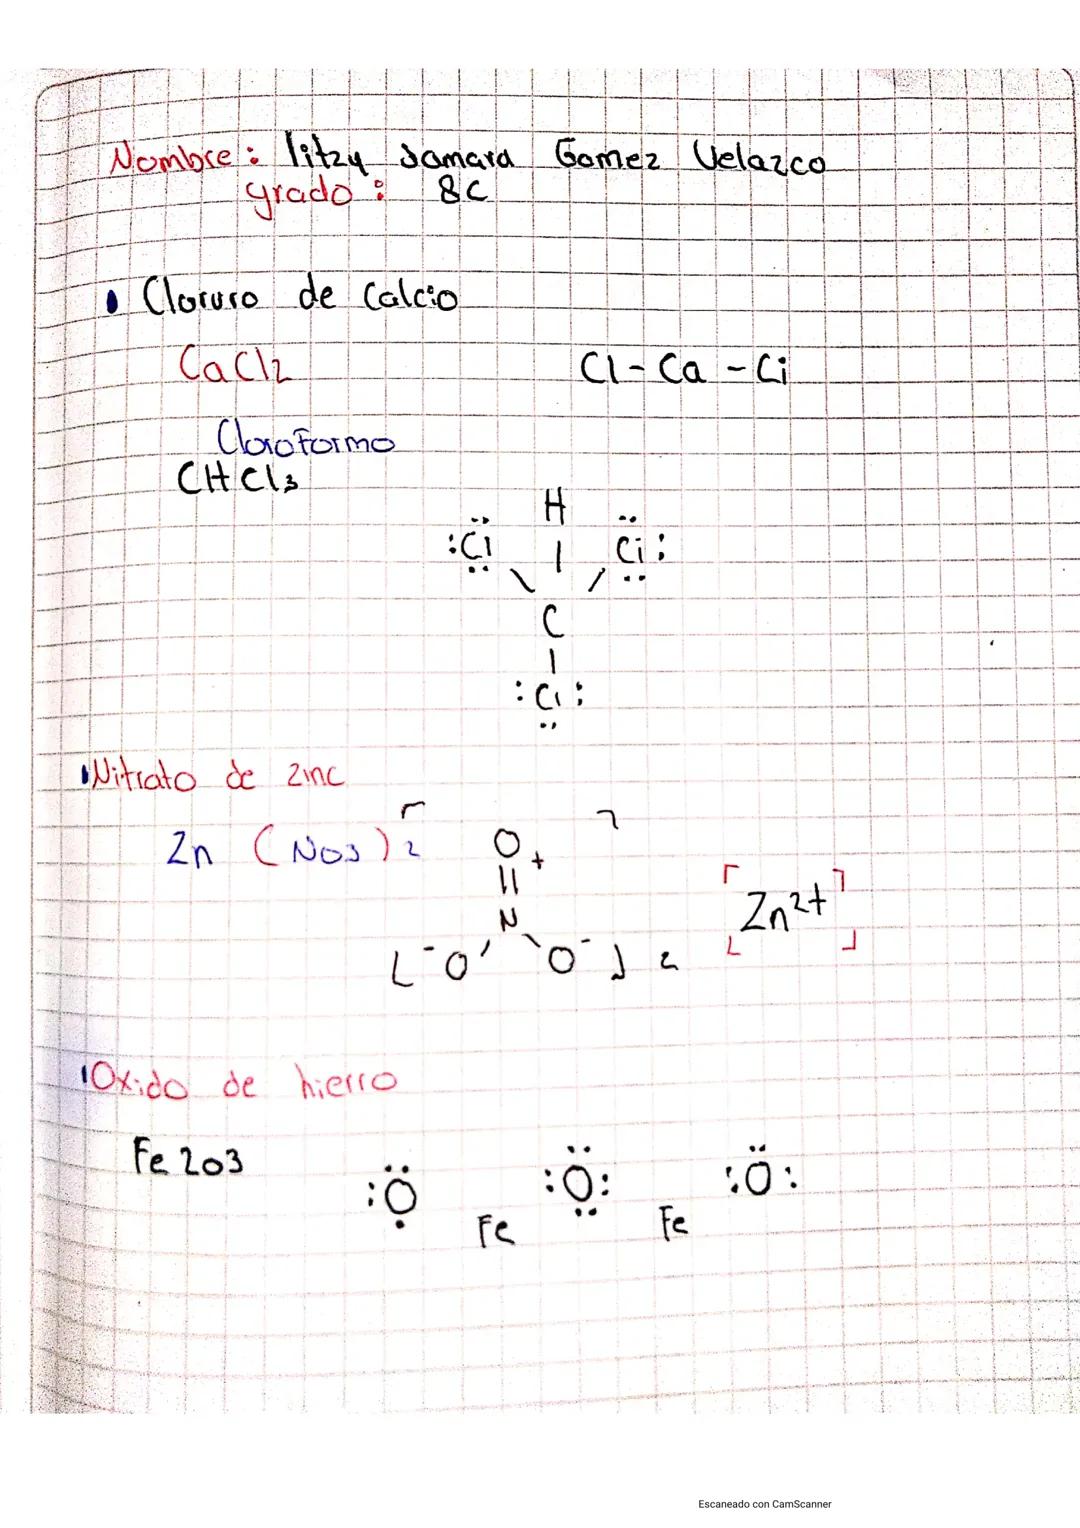 Nombre: litzy Samara Gomez Velazco
grado: 8C
Cloruro de Calcio
CaCl2 Cl-Ca-Ci
Cloroformo
CHCl3
H
:Cl Ci:
C
:Cl:
Nitrato de zinc
Zn (NO3)2
O+
N
[-O O-]2 [Zn2+]
Oxido de hierro
Fe2O3 :O :O: :O:
Fe Fe
Escaneado con CamScanner